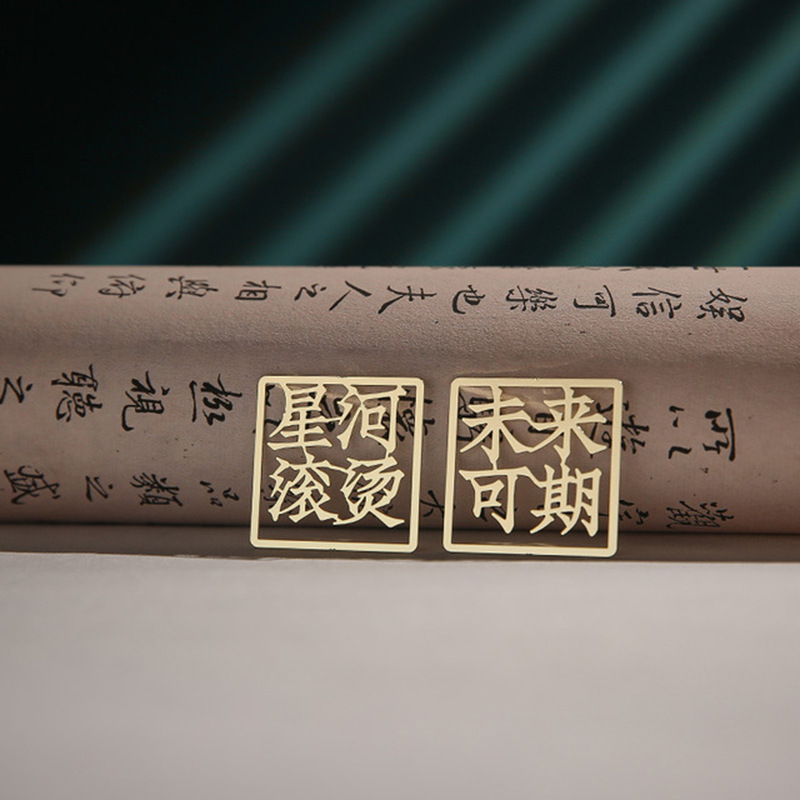 星河
滚烫
未来
可期
娱信可樂也夫人之相與俯仰
所以
極視聽之
品類之盛